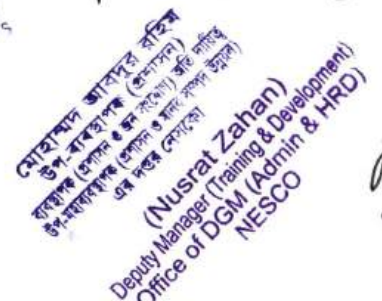 মোহাম্মাদ আবদুর রহিম
উপ-ব্যবস্থাপক (প্রশাসন)
ব্যবস্থাপক (প্রশাসন ও জন সংযোগ) অতিঃ দায়িত্ব
উপ-মহাব্যবস্থাপক (প্রশাসন ও মানব সম্পদ উন্নয়ন)
এর দপ্তর নেসকো
(Nusrat Zahan)
Deputy Manager (Training & Development)
Office of DGM (Admin & HRD)
NESCO